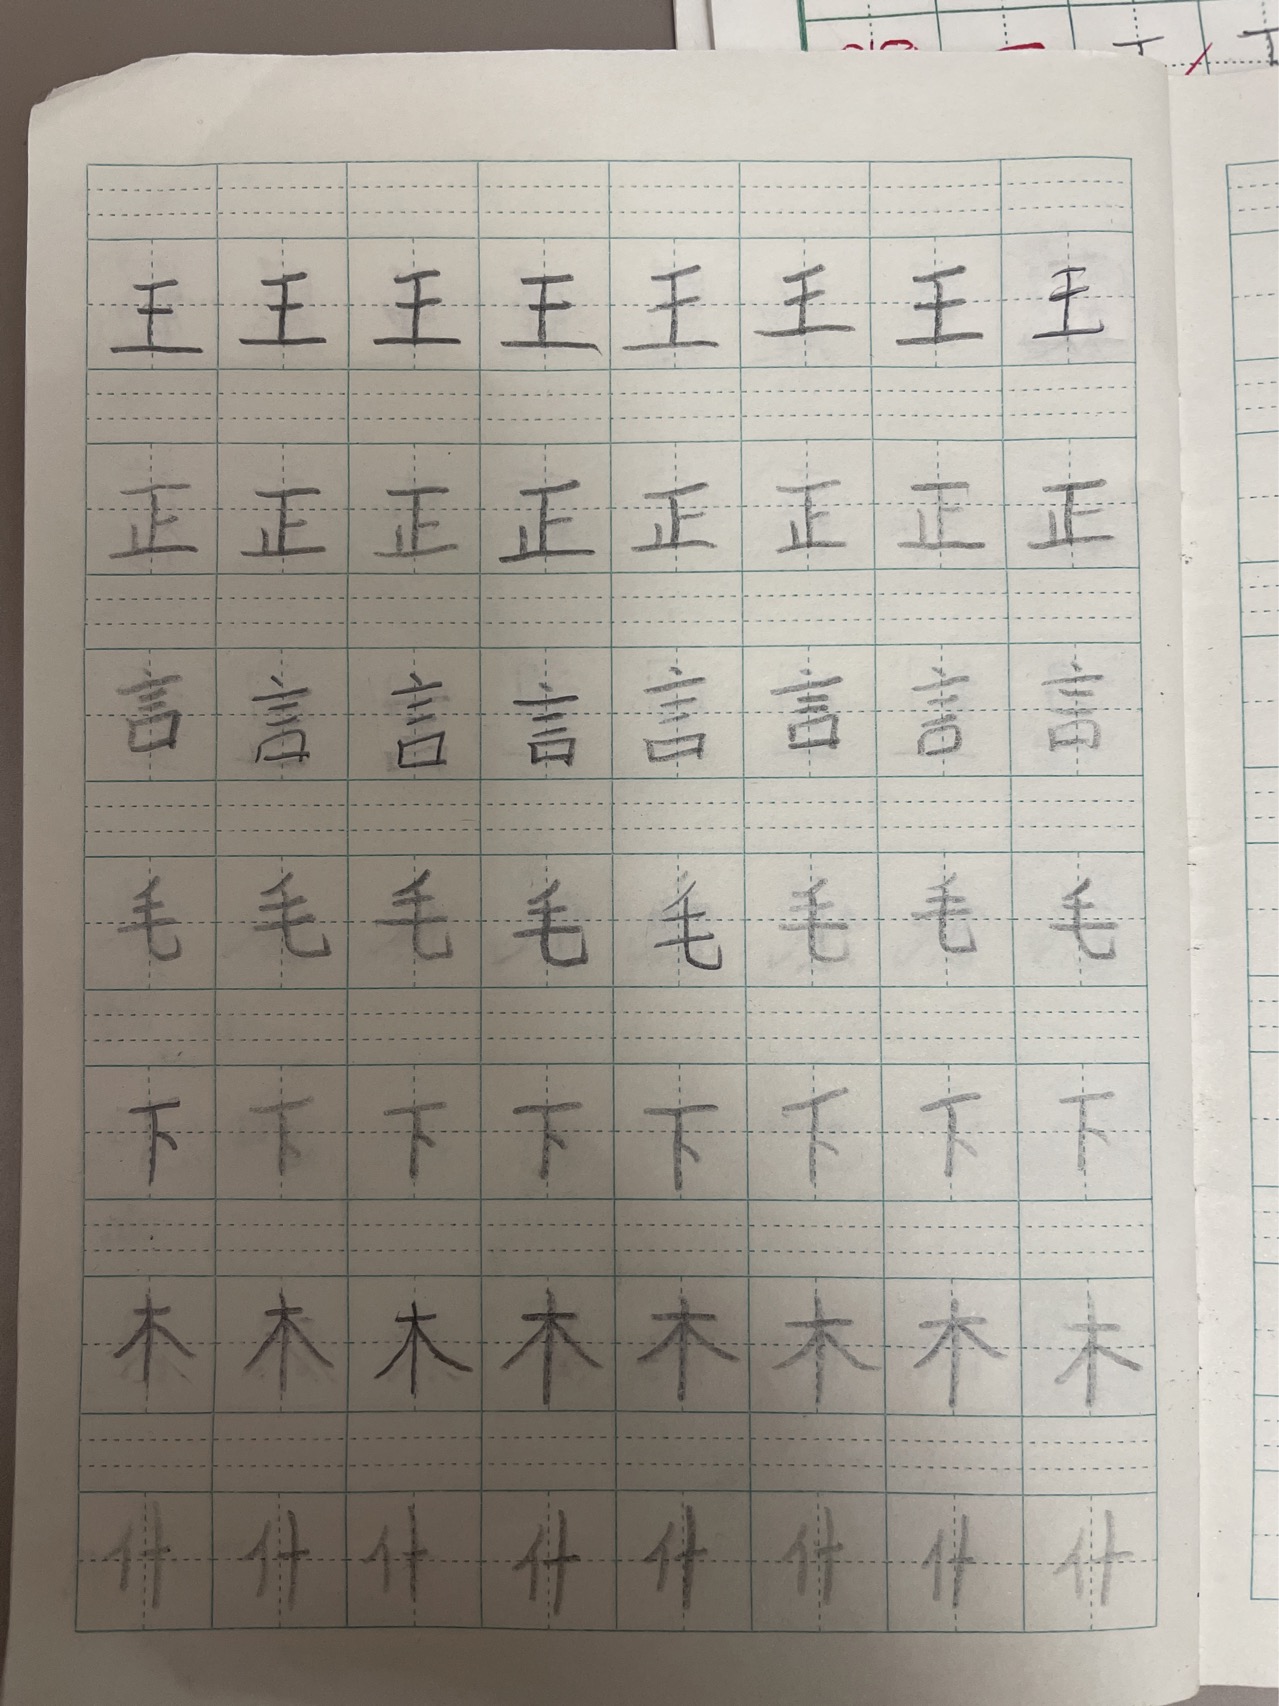 王 王 王 王 王 王 王 王
正 正 正 正 正 正 正 正
言 言 言 言 言 言 言 言
毛 毛 毛 毛 毛 毛 毛 毛
下 下 下 下 下 下 下 下
木 木 木 木 木 木 木 木
什 什 什 什 什 什 什 什